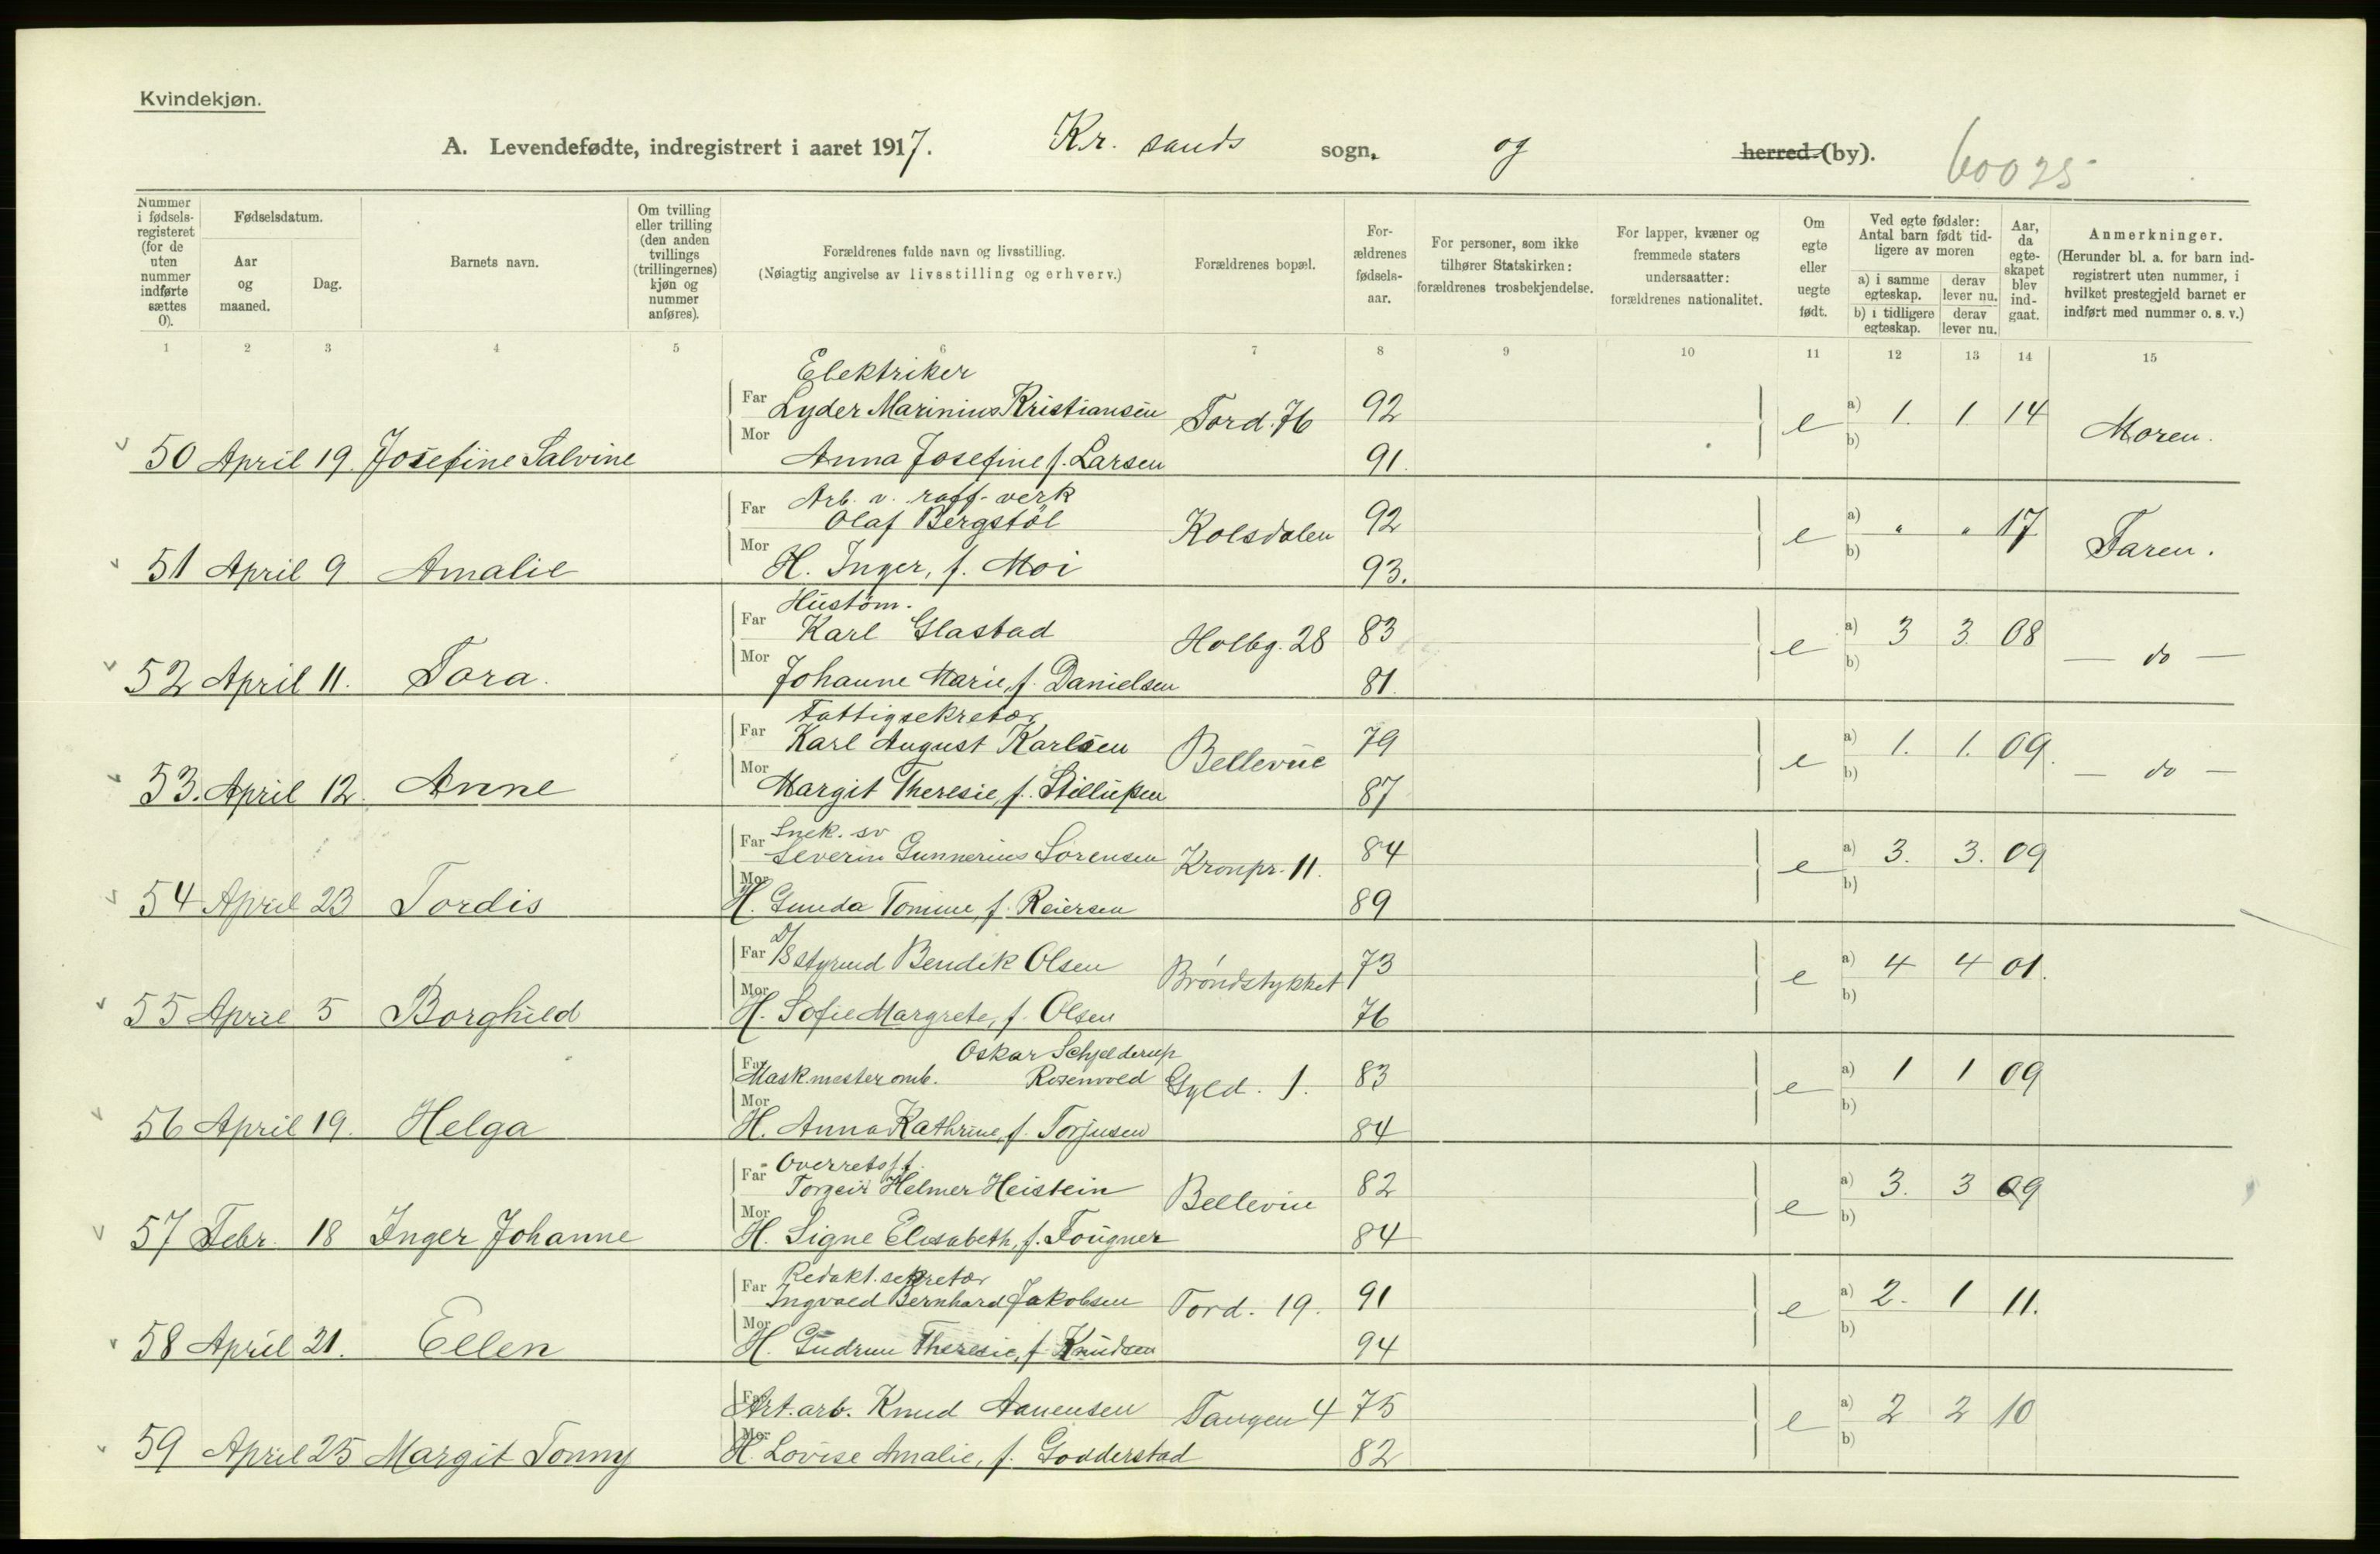 Kvindekjøn.
A. Levendefødte, indregistrert i aaret 1917. Kr. sands sogn, og herred (by). 60025
Nummer i fødsels-registeret (for de uten nummer indførte sættes 0).
Fødselsdatum.
Aar og maaned.
Dag.
Barnets navn.
Om tvilling eller trilling (den anden tvillings (trillingernes) kjøn og nummer anføres).
Forældrenes fulde navn og livsstilling.
(Nøiagtig angivelse av livsstilling og erhverv.)
Forældrenes bopæl.
For-ældrenes fødsels-aar.
For personer, som ikke tilhører Statskirken: forældrenes trosbekjendelse.
For lapper, kvæner og fremmede staters undersaatter: forældrenes nationalitet.
Om egte eller uegte født.
Ved egte fødsler: Antal barn født tid-ligere av moren
a) i samme egteskap. derav lever nu.
b) i tidligere egteskap. derav lever nu.
Aar, da egte-skapet blev ind-gaat.
Anmerkninger.
(Herunder bl. a. for barn ind-registrert uten nummer, i hvilket prestegjeld barnet er indført med nummer o. s. v.)
1 2 3 4 5 6 7 8 9 10 11 12 13 14 15
Elektriker
Far Lyder Marinius Kristiansen Tord. 76 92 e a) 1. 1 14 Moren.
Mor b)
50 April 19. Josefine Salvine Anna Josefine f. Larsen 91.
Arb. v. raff-verk
Far Olaf Bergstöl Kolsdalen 92 e a) " " 17 Faren.
Mor b)
51 April 9 Amalie H. Inger, f. Moi 93.
Hustöm.
Far Karl Glastad Holbg. 28 83 e a) 3 3 08 — do —
Mor b)
52 April 11. Tora. Johanne Marie, f. Danielsen 81.
Fattigsekretær
Far Karl August Karlsen Bellevue 79 e a) 1. 1. 09. — do —
Mor b)
53. April 12. Anne Margit Theresie, f. 87
Snek. sv
Far Severin Gunnerius Sörensen Kronpr. 11. 84 e a) 3. 3. 09
Mor b)
54 April 23 Tordis H. Gunda Tomine, f. Reiersen 89
Far D/S styrmd Bendik Olsen Bröndstykket 73 e a) 4 4 01.
Mor b)
55 April 5 Borghild H. Sofie Margrete, f. Olsen 76
Oskar Schjelderup
Far Maskmester omb. Rosenvold Gyld. 1. 83 e a) 1 1 09
Mor b)
56 April 19. Helga H. Anna Kathrine, f. Torjusen 84
Overretssf.
Far Torgeir Helmer Heistein Bellevue 82 e a) 3. 3 09
Mor b)
57 Febr. 18 Inger Johanne H. Signe Elisabeth, f. Fougner 84
Redakt. sekretær
Far Ingvald Bernhard Jakobsen Tord. 19. 91 e a) 2. 1 11.
Mor b)
58 April 21. Ellen H. Gudrun Theresie, f. Knudsen 94
Far Art. arb. Knud Aanensen Tangen 4 75 e a) 2 2 10
Mor b)
59 April 25 Margit Tonny H. Lovise Amalie, f. Godderstad 82